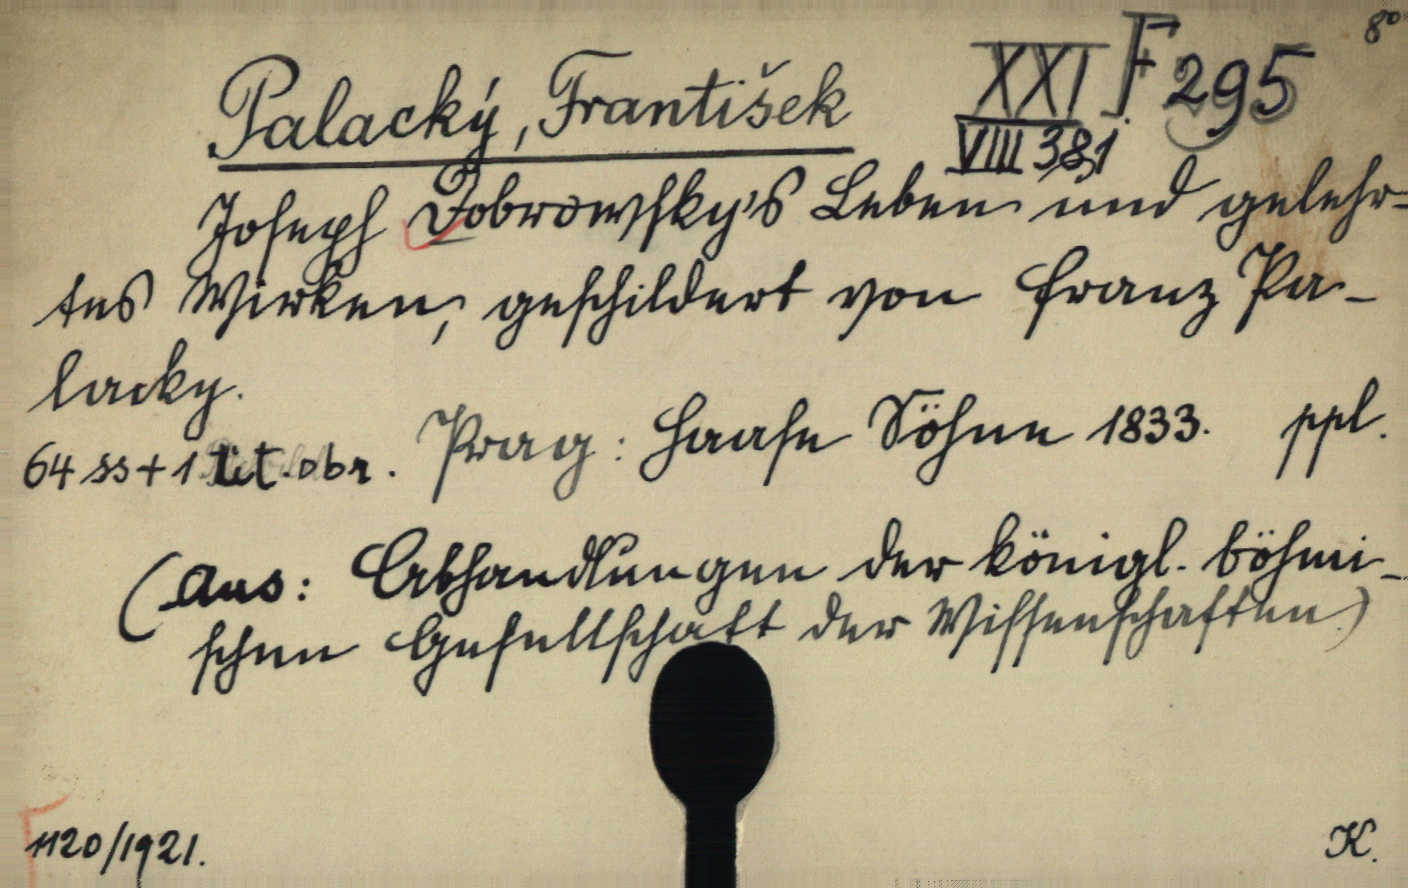 8°
XXI F 295
Palacký, František
VIII 381
Joseph Dobrowsky's Leben und gelehr-
tes Wirken, geschildert von Franz Pa-
lacky.
64 ss + 1 tit. obr. Prag: Haase Söhne 1833. ppl.
(Aus: Abhandlungen der königl. böhmi-
schen Gesellschaft der Wissenschaften.)
1120/1921.
K.